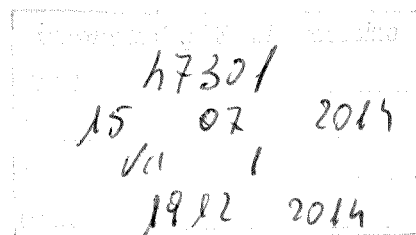 47301
15 07 2014
1
19 12 2014